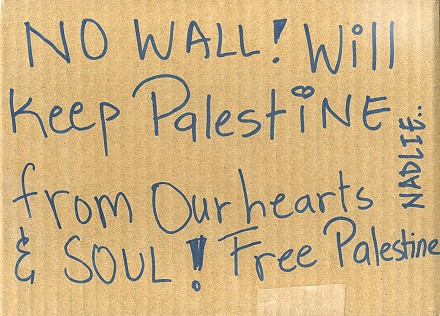 NO WALL! Will
Keep PalestiNE
from Our hearts
& SOUL! Free Palestine
NADLIE..